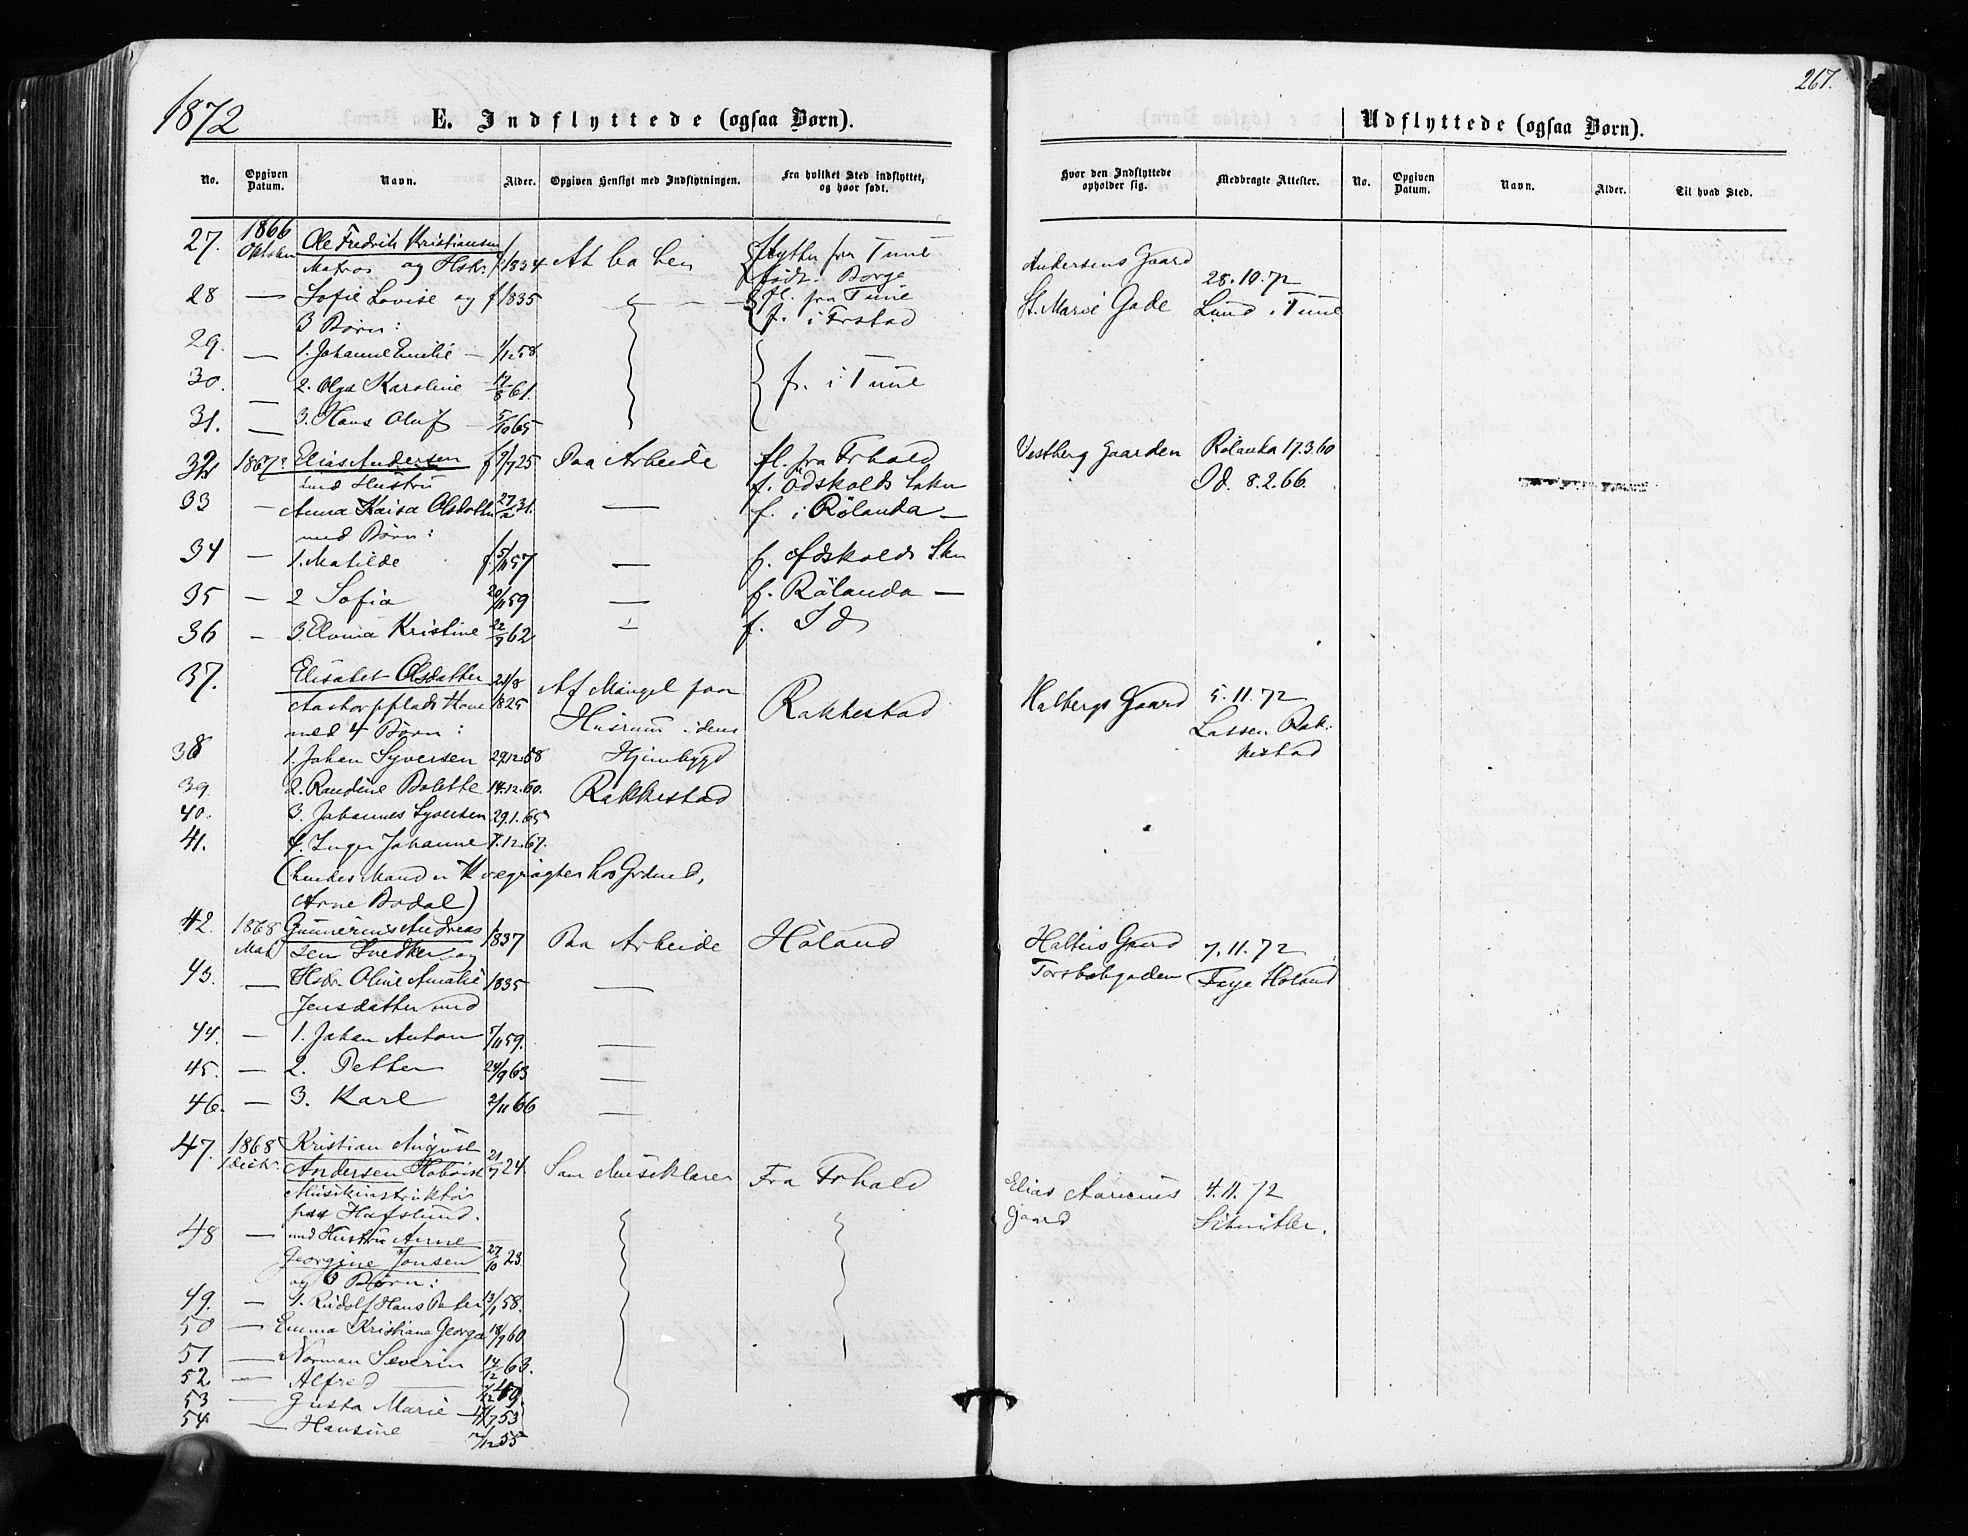 1872
E. Indflyttede (ogsaa Børn).
No. Opgiven Datum. Navn. Alder. Opgiven Hensigt med Indflytningen. Fra hvilket Sted indflyttet, og hvor født.
27. 1866 Oktober Ole Fredrik Kristiansen
Matros og Hstr. 1834 At bo her flytter fra Tune
født Borge
28 — Sofie Lovise og f 1835 fl. fra Tune
3 Børn: f. i Frstad
29. — 1. Johanne Emilie — 1/12 58
30. — 2. Olga Karoline 12/8 61. f. i Tune
31. — 3. Hans Oluf — 5/10 65
32 1867 Elias Andersen f 9/7 25 Paa Arbeide fl. fra Frhald
med Hustru f. Ödskolds Sokn
33 — Anna Kaisa Olsdatter 27/2 31. — f. i Rölanda —
med Børn:
34 — 1. Matilde f. 5/11 57 — f. Ödskolds Skn
35 — 2 Sofia 20/11 59 — f. Rölanda —
36 — 3. Elvina Kristine 22/9 62 — f. Id
37. Elisabet Olsdatter 21/8
Aastorpplads Kone 1825 Af Mangel paa
med 4 Børn: Husrum i dens Rakkestad
38 1. Johan Syversen 29.12.58 Hjembygd
39 2. Randine Bolette 14.12.60. Rakkestad
40. 3. Johannes Syversen 29.1.65
41. 4. Inger Johanne 7.12.67.
(hendes Mand er Kvægrøgter hos
Arne Bodal)
42. 1868 Gunnerius Andreas
sen Snedker og 1837 Paa Arbeide Höland
43. — Hstr. Oline Amalie 1835 —
Jensdatter med
44. — 1. Johan Anton 5/11 59. —
45. — 2. Petter 24/9 63 —
46. — 3. Karl 2/11 66 —
47. 1868 Kristian August 21/7 24.
Andersen Som Musiklærer Fra Frhald
Musikinstruktør
paa Hafslund.
48 — med Hustru Anne
Georgine Jonsen 27/10 23
og 6 Børn:
49. — 1. Rudolf Hans Peter 13/1 58.
50 — Emma Kristiane Georgia 18/9 60
51 — Norman Severin 14/12 63.
52. — Alfred
53 — Gusta Marie 53
54. — Hansine 2/12 55
267.
Udflyttede (ogsaa Børn).
Hvor den Indflyttede opholder sig. Medbragte Attester. No. Opgiven Datum. Navn. Alder. Til hvad Sted.
Andersens Gaard 28.10.72
St. Marie Gade Lund i Tune
Vestberg Gaarden Rölanda 17.3.60
Id. 8.2.66.
Halbergs Gaard 5.11.72
Lassen Rak-
kestad
Gaard 7.11.72
Faye Höland
Elias Gaard 4.11.72
Schnitler.